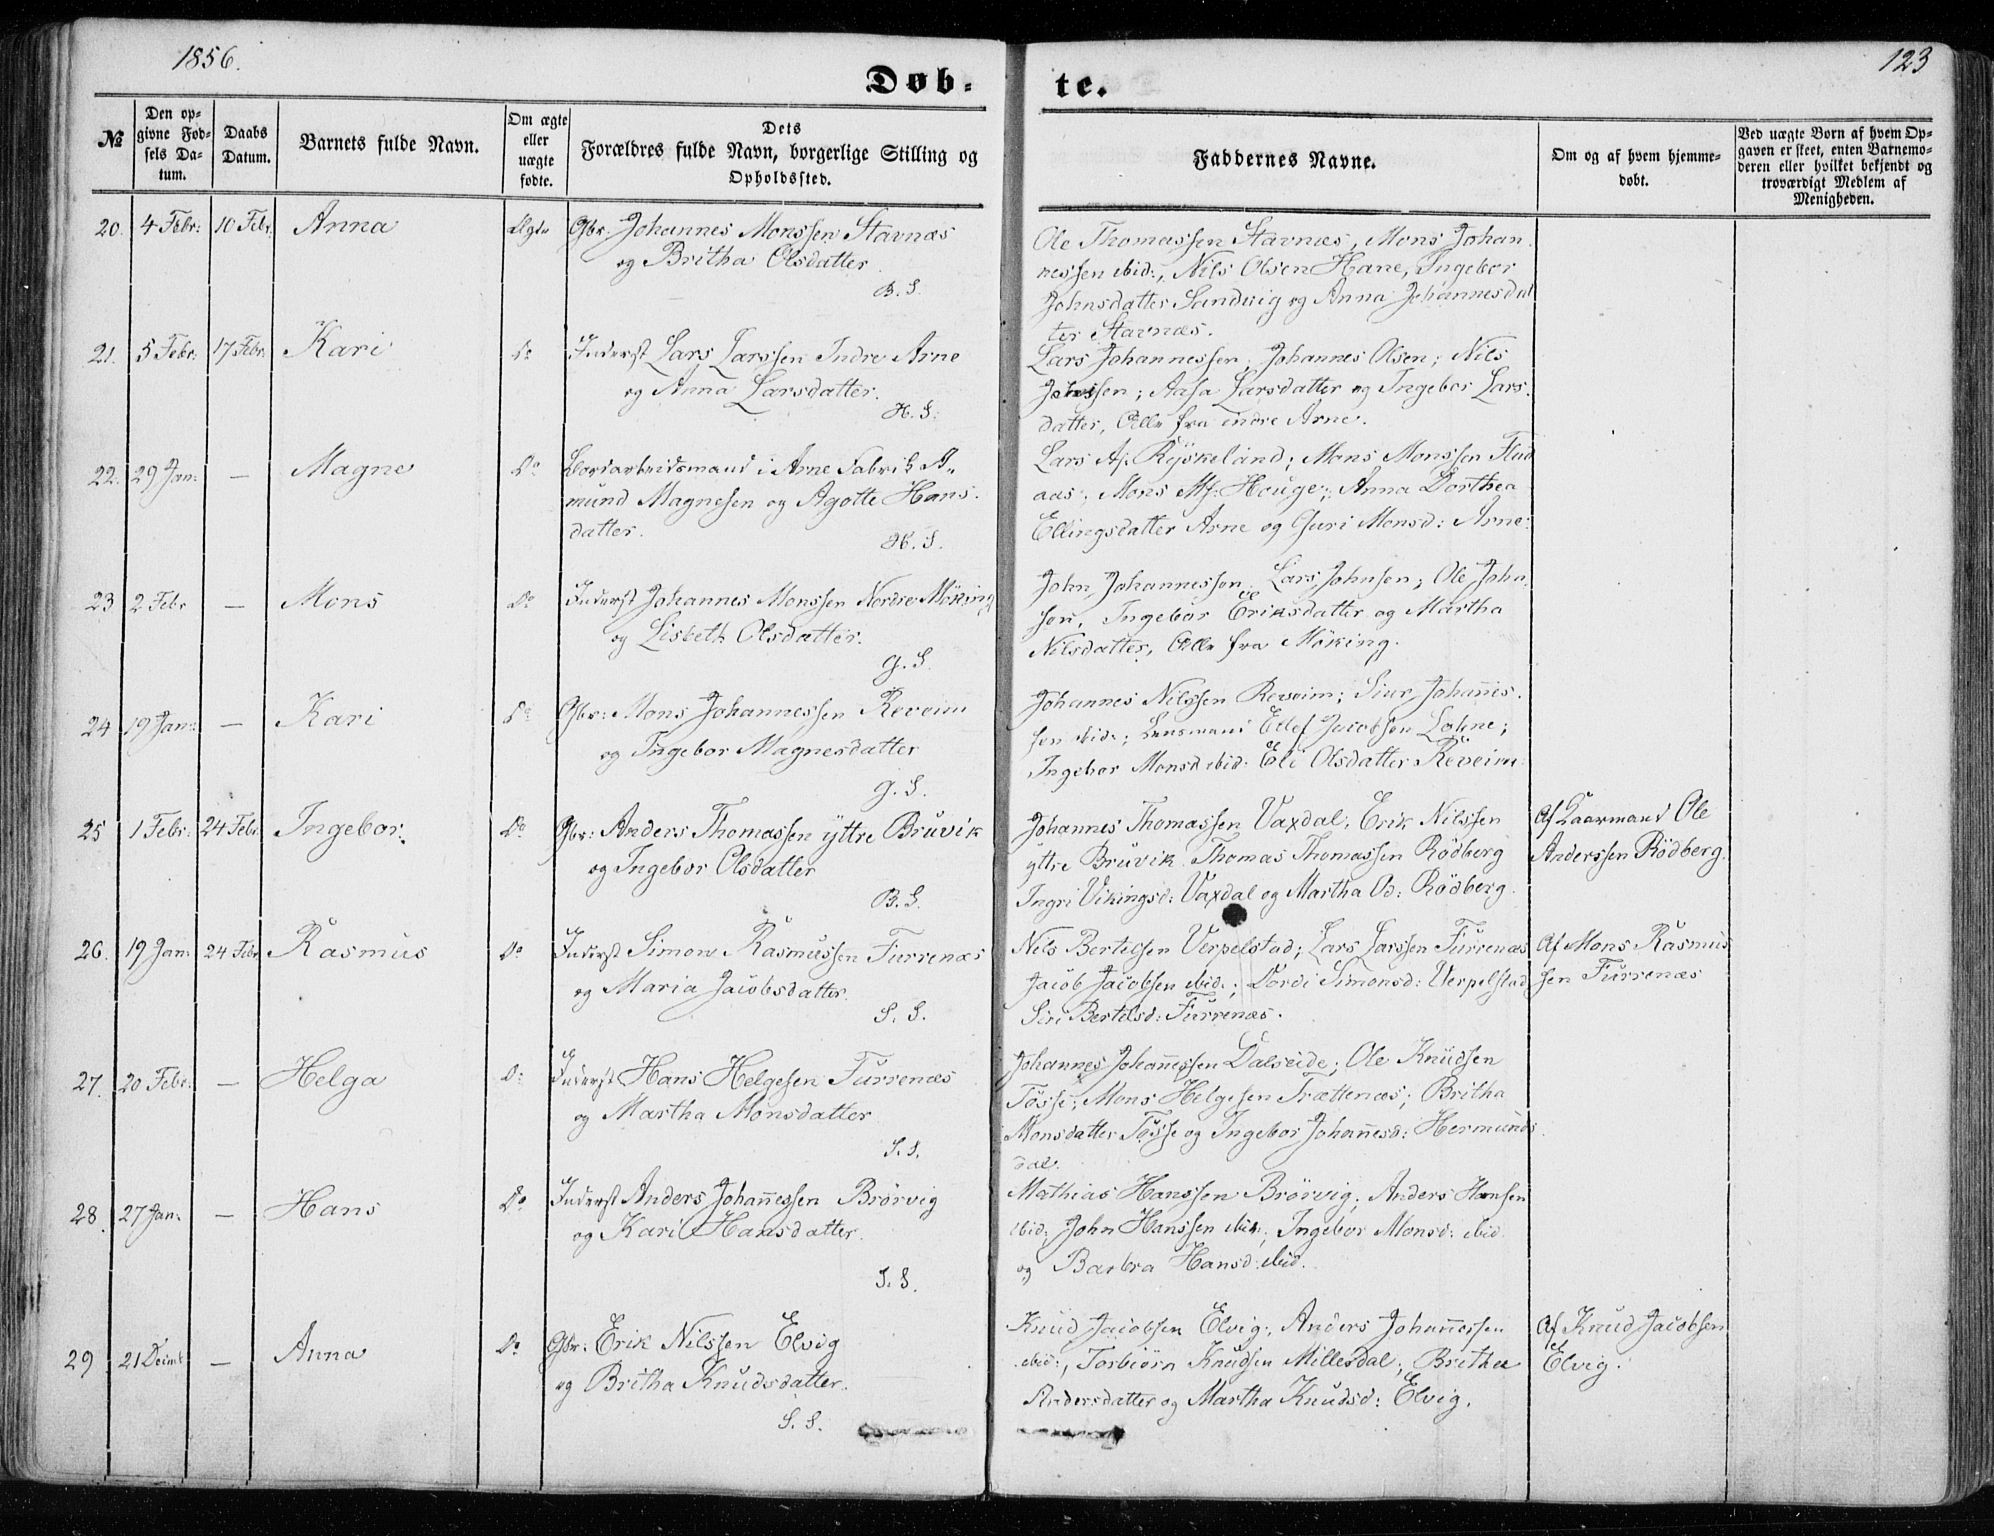 1856.
123
Døb-
te.
№
Den op-
givne Fød-
sels Da-
tum.
Daabs
Datum.
Barnets fulde Navn.
Om ægte
eller
uægte
fødte.
Dets
Forældres fulde Navn, borgerlige Stilling og
Opholdssted.
Faddernes Navne.
Om og af hvem hjemme-
døbt.
Ved uægte Børn af hvem Op-
gaven er skeet, enten Barnemo-
deren eller hvilket bekjendt og
troværdigt Medlem af
Menigheden.
20. 4 Febr: 10 Febr. Anna Ægte Gbr: Johannes Monssen Stavnæs
og Britha Olsdatter.
B. S.
Ole Thomassen Stavnæs, Mons Johan
nessen ibid:, Nils Olsen Hane, Ingebor
Johnsdatter Sandvig og Anna Johannesdat
ter Stavnæs.
21. 5 Febr: 17 Febr. Kari Do Inderst Lars Larssen Indre Arne
og Anna Larsdatter.
H. S.
Lars Johannessen, Johannes Olsen; Nils
Johnsen; Aasa Larsdatter og Ingebor Lars-
datter, Alle fra indre Arne.
22. 29 Jan: — Magne Do Bordarbeidsmand i Arne Fabrik A-
mund Magnesen og Agotte Hans-
datter.
H. S.
Lars Aj. Ryskeland; Mons Monssen Flad
aas; Mons Mj: Houge; Anna Dorthea
Ellingsdatter Arne og Guri Monsd: Arne:
23 2 Febr — Mons Do Inderst Johannes Monssen Nordre Möking
og Lisbeth Olsdatter.
G. S.
John Johannessen, Lars Johnsen; Ole John-
sen, Ingebor Eriksdatter og Martha
Nilsdatter, Alle fra Möking.
24 19 Jan: — Kari Do Gbr: Mons Johannessen Reveim
og Ingebor Magnesdatter
G. S.
Johannes Nilssen Reveim; Siur Johannes-
sen ibid:; Lensmand Ellef Jacobsen Lohne;
Ingebor Monsd ibid: Eli Olsdatter Reveim
25 1 Febr: 24 Febr. Ingebor: Do Gbr: Anders Thomassen yttre Bruvik
og Ingebor Olsdatter
B. S.
Johannes Thomassen Vaxdal, Erik Nilssen
yttre Bruvik Thomas Thomassen Rödberg
Ingri Vikingsd: Vaxdal og Martha Od: Rödberg.
Af Kaarmand Ole
Anderssen Rödberg.
26. 19 Jan: 24 Febr Rasmus Do Inderst Simon Rasmussen Furrenæs
og Maria Jacobsdatter.
S. S.
Nils Bertelsen Verpelstad; Lars Larssen Furrenæs
Jacob Jacobsen ibid:; Dordi Simonsd: Verpelstad
Siri Bertelsd: Furrenæs.
Af Mons Rasmus
sen Furrenæs
27. 20 Febr: — Helga Do Inderst Hans Helgesen Furrenæs
og Martha Monsdatter
S. S.
Johannes Johannessen Dalseide; Ole Knudsen
Tösse; Mons Helgesen Trættenæs; Britha
Monsdatter Tösse og Ingebor Johannesd: Hermunds
dal.
28. 27 Jan: — Hans Do Inderst Anders Johannessen Brörvig
og Kari Hansdatter.
S. S.
Mathias Hanssen Brörvig, Anders Hansen
ibid: John Hanssen ibid:, Ingebor Monsd: ibid
og Barbra Hansd: ibid.
29 21 Decmb — Anna Do Gbr: Erik Nilssen Elvig
og Britha Knudsdatter.
S. S.
Knud Jacobsen Elvig:, Anders Johannessen
ibid:, Torbiörn Knudsen Millesdal; Britha
Andersdatter og Martha Knudsd: Elvig.
Af Knud Jacobsen
Elvig.